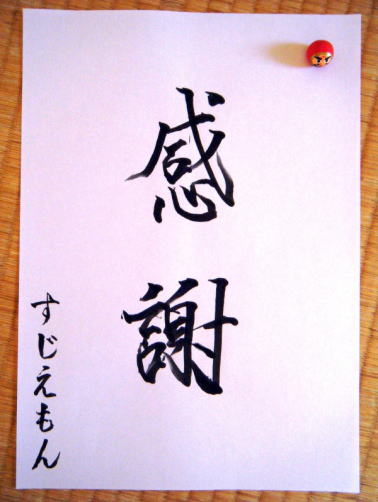 感謝
すじえもん